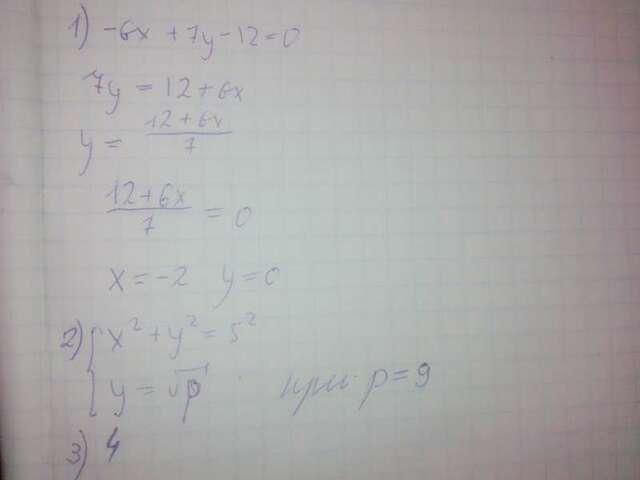 1) -6x + 7y - 12 = 0
7y = 12 + 6x
y = \frac{12 + 6x}{7}
\frac{12 + 6x}{7} = 0
x = -2 y = 0
2) { x² + y² = 5²
y = √p при p = 9
3) 4